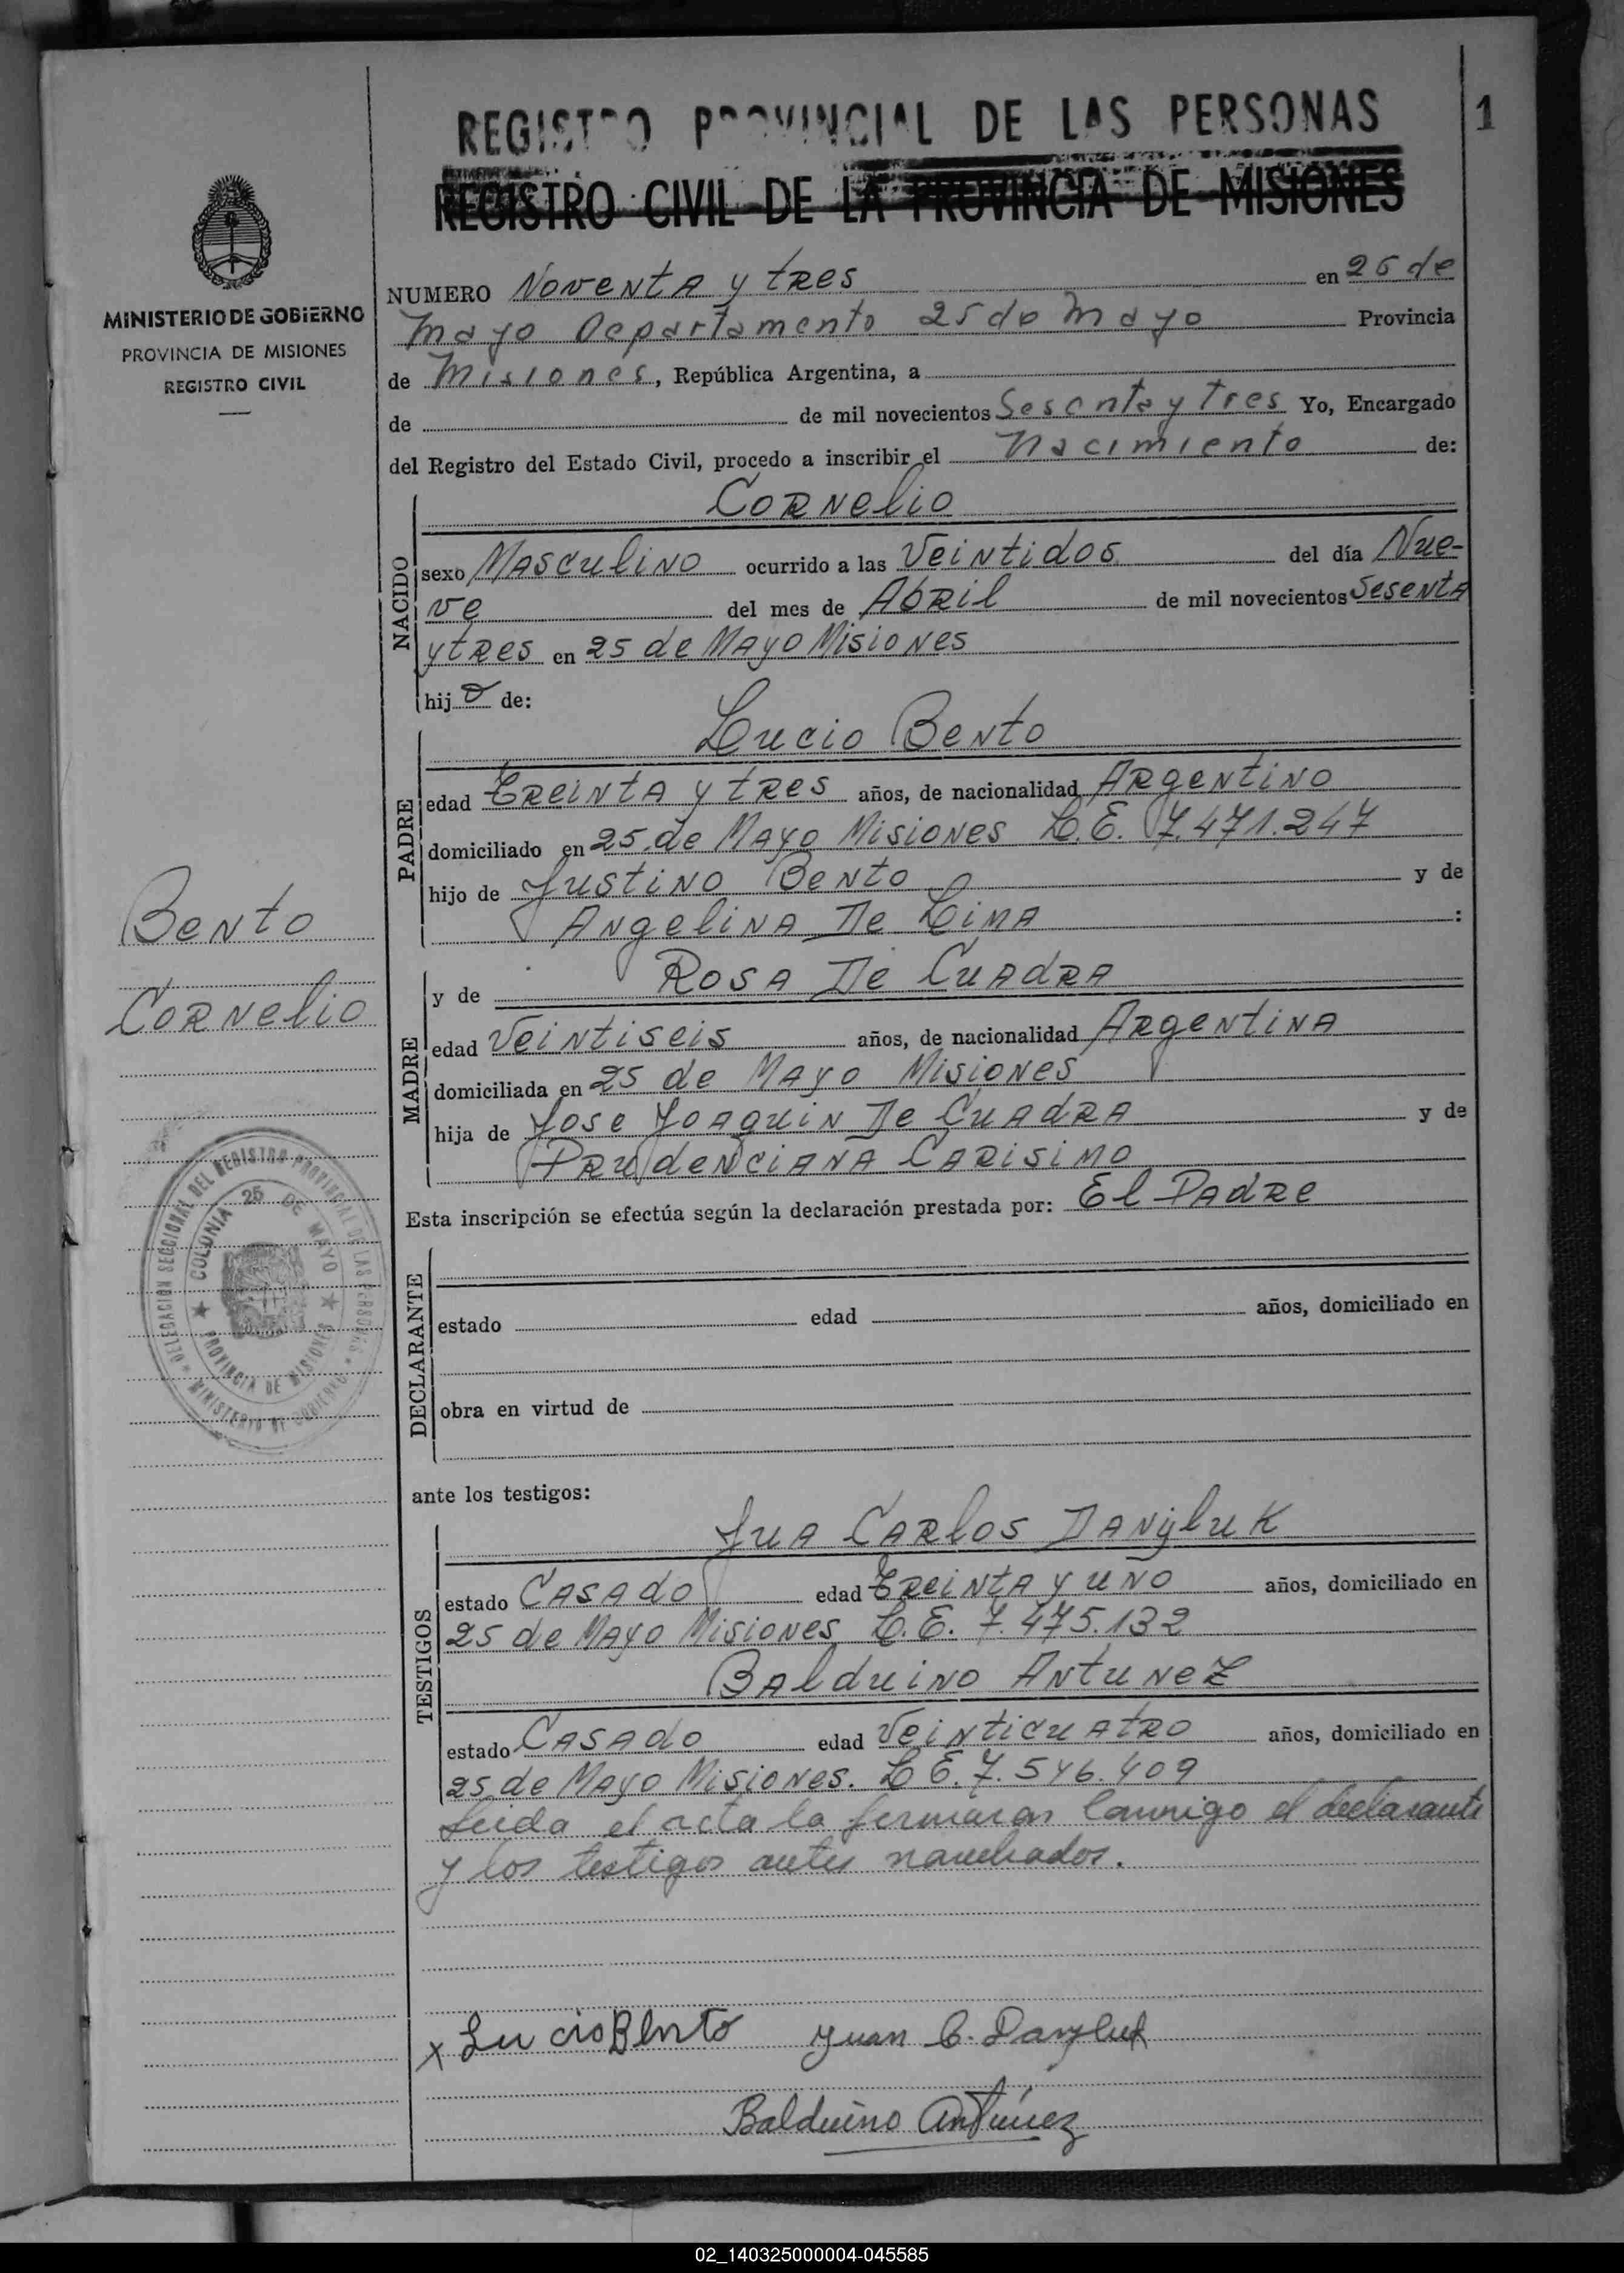 REGISTRO PROVINCIAL DE LAS PERSONAS
1
REGISTRO CIVIL DE LA PROVINCIA DE MISIONES
MINISTERIO DE GOBIERNO
PROVINCIA DE MISIONES
REGISTRO CIVIL
NUMERO Noventa y tres en 25 de
Mayo Departamento 25 de Mayo Provincia
de Misiones, República Argentina, a
de de mil novecientos Sesenta y Tres Yo, Encargado
del Registro del Estado Civil, procedo a inscribir el Nacimiento de:
NACIDO
Cornelio
sexo Masculino ocurrido a las Veintidos del día Nue-
ve del mes de Abril de mil novecientos Sesenta
y tres en 25 de Mayo Misiones
hijo de:
PADRE
Lucio Bento
edad Treinta y tres años, de nacionalidad Argentino
domiciliado en 25 de Mayo Misiones L.E. 7.471.247
hijo de Justino Bento y de
Angelina De Lima :
Bento
Cornelio
MADRE
y de Rosa De Cuadra
edad Veintiseis años, de nacionalidad Argentina
domiciliada en 25 de Mayo Misiones
hija de Jose Joaquin De Cuadra y de
Prudenciana Carisimo
Esta inscripción se efectúa según la declaración prestada por: El Padre
DELEGACION SECCIONAL DEL REGISTRO PROVINCIAL DE LAS PERSONAS
MINISTERIO DE GOBIERNO
COLONIA 25 DE MAYO
PROVINCIA DE MISIONES
DECLARANTE
estado edad años, domiciliado en
obra en virtud de
ante los testigos:
TESTIGOS
Jua Carlos Danyluk
estado Casado edad Treinta y uno años, domiciliado en
25 de Mayo Misiones L.E. 7.475.132
Balduino Antunez
estado Casado edad Veinticuatro años, domiciliado en
25 de Mayo Misiones. L.E. 7.546.409
Leida el acta la firmaran conmigo el declarante
y los testigos antes nombrados.
x Lucio Bento Juan C. Danyluk
Balduino Antúnez
02_140325000004-045585